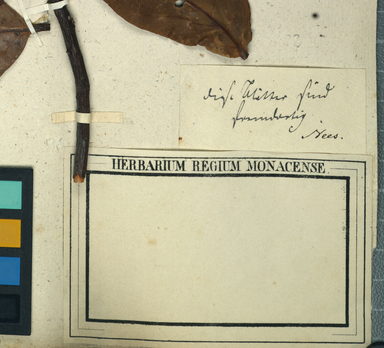 diese Blätter sind
fremdartig
Nees.
HERBARIUM REGIUM MONACENSE